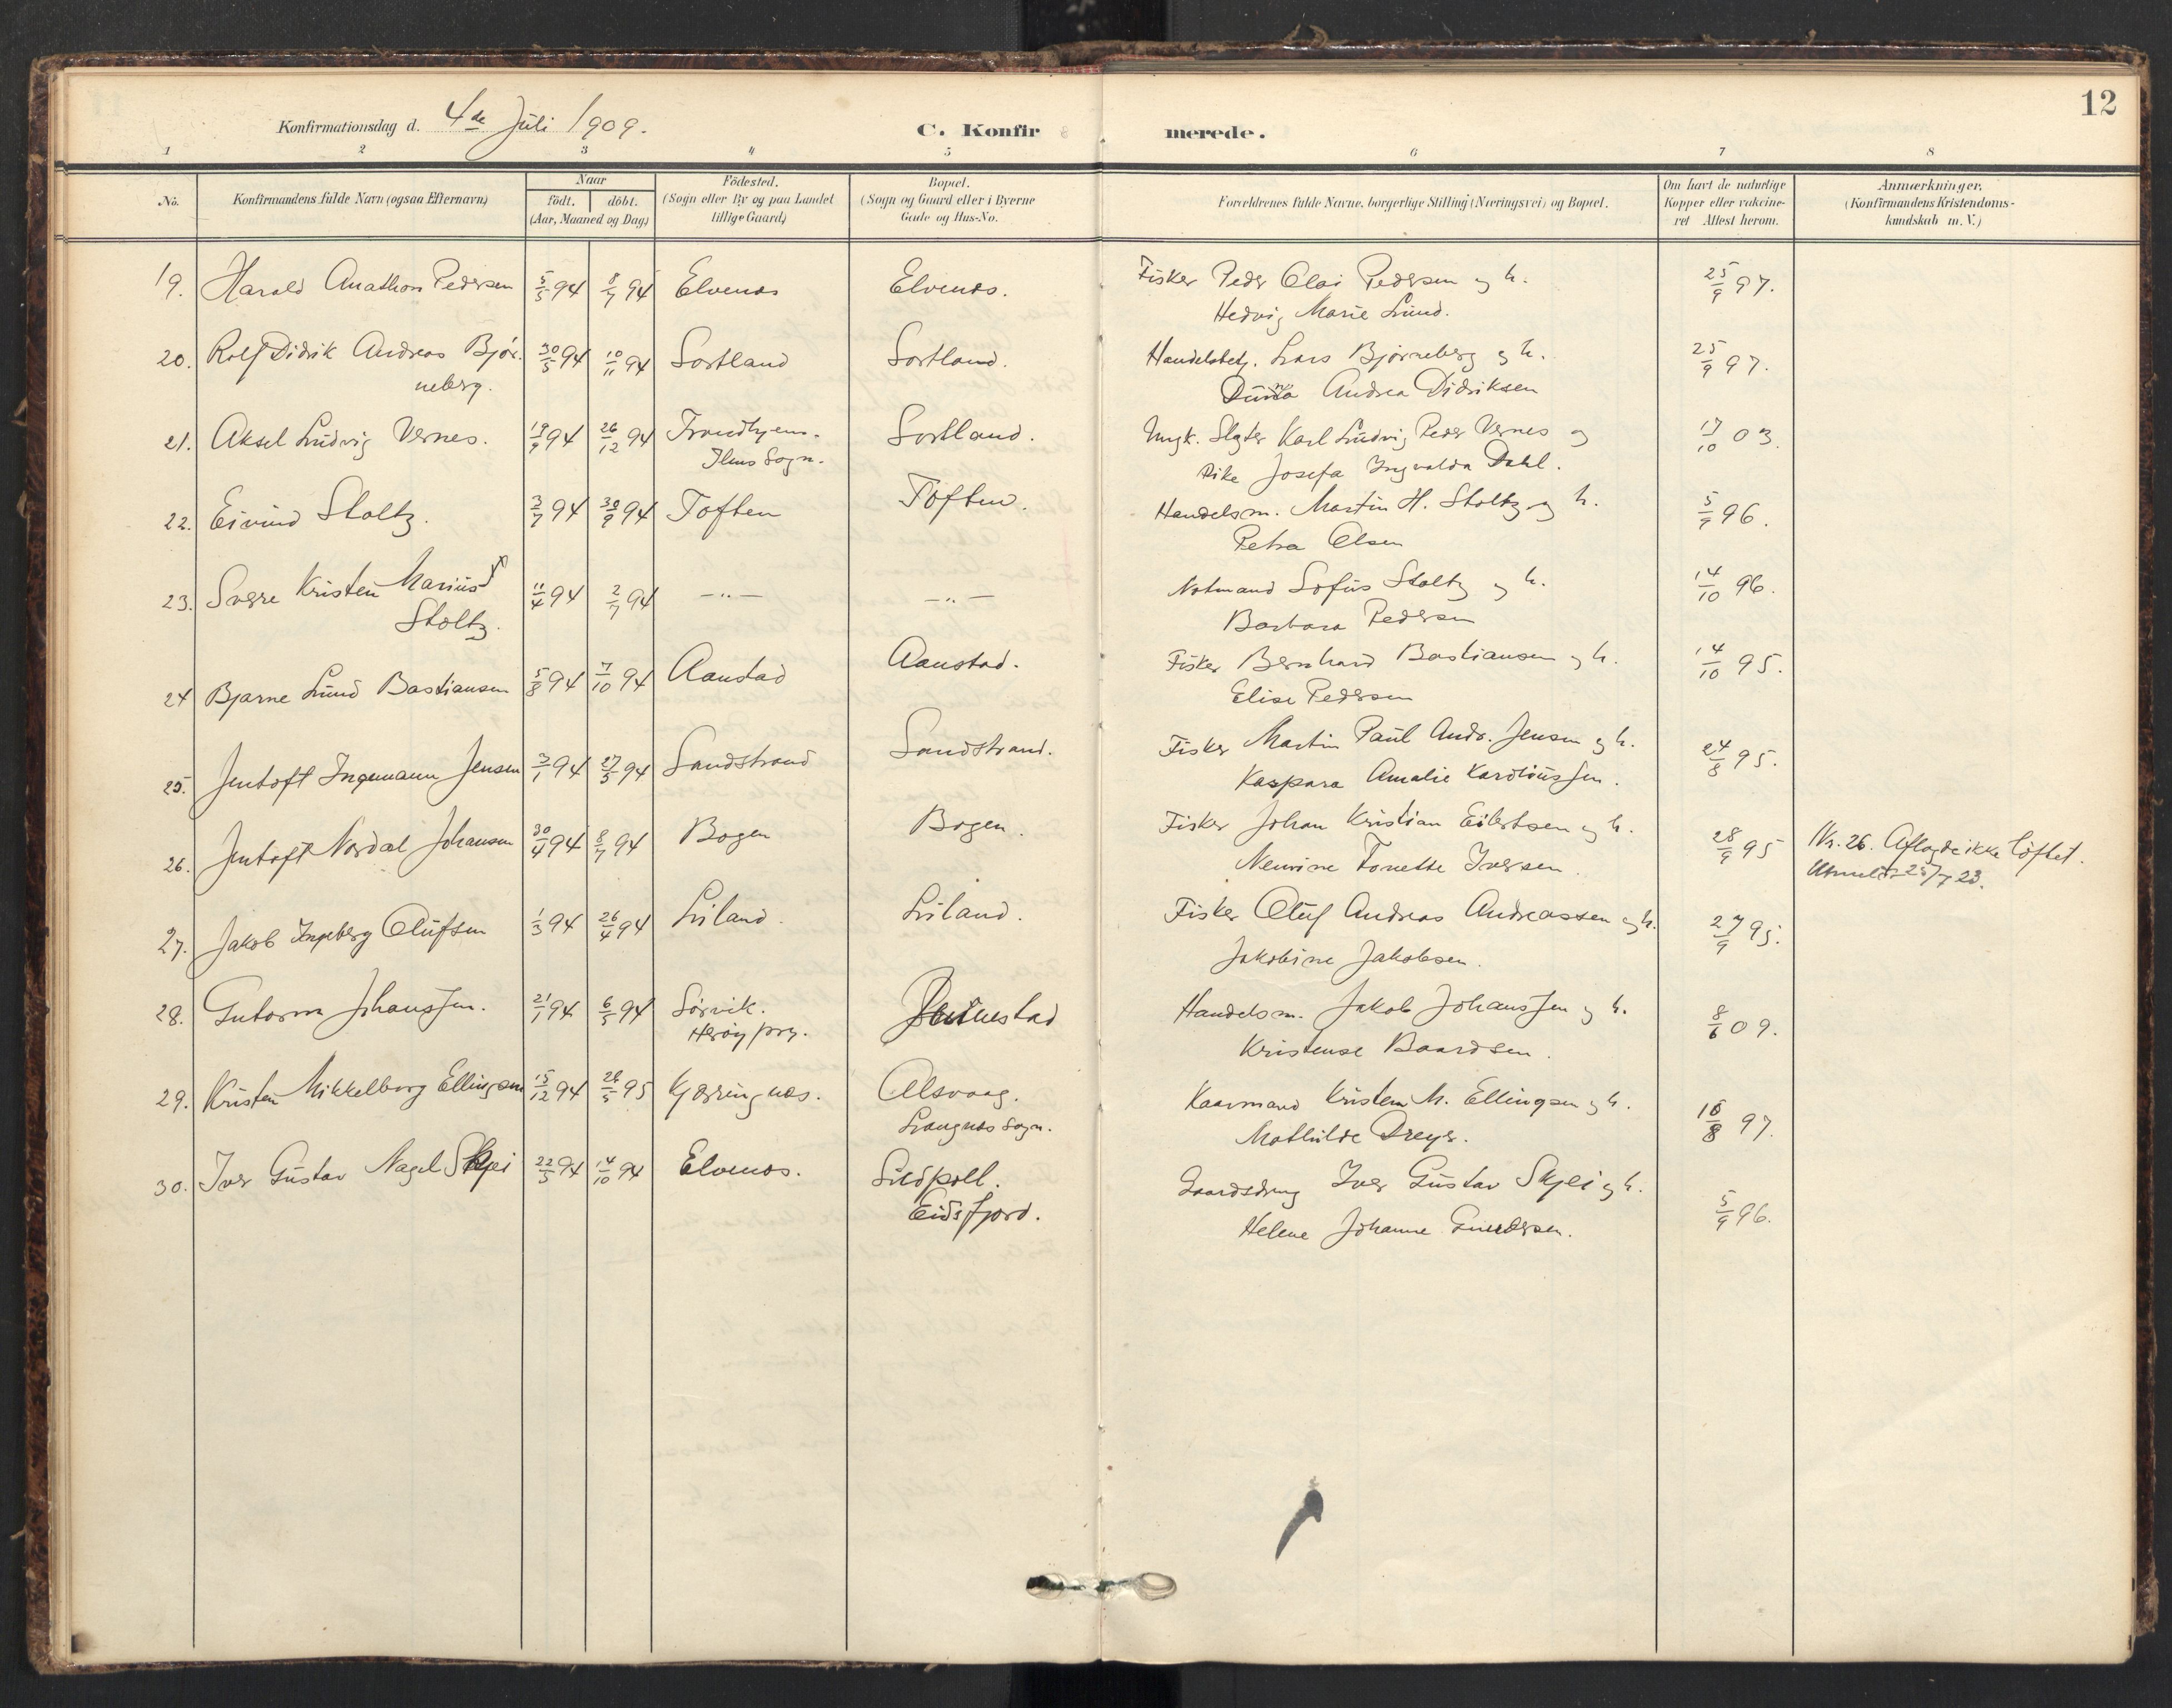 12
Konfirmationsdag d. 4de Juli 1909.
C. Konfirmerede.
1 2 3 4 5 6 7 8
No.
Konfirmandens fulde Navn (ogsaa Efternavn)
Naar
födt. döbt.
(Aar, Maaned og Dag)
Födested.
(Sogn eller By og paa Landet
tillige Gaard)
Bopæl.
(Sogn og Gaard eller i Byerne
Gade og Hus-No.
Forældrenes fulde Navne, borgerlige Stilling (Næringsvei) og Bopæl.
Om havt de naturlige
Kopper eller vakcine-
ret Attest herom.
Anmærkninger.
(Konfirmandens Kristendoms-
kundskab m. V.)
19. Harald Anathon Pedersen 5/5 94 8/7 94 Elvenes Elvenes. Fisker Peder Olai Pedersen og h. 25/9 97.
Hedvig Marie Lund.
20. Rolf Didrik Andreas Bjør- 30/5 94 10/11 94 Sortland Sortland. Handelsbetj. Lars Bjørneberg og h. 25/9 97.
neberg. Andrea Didriksen
21. Aksel Ludvig Vernes. 19/9 94 26/12 94 Trondhjem. Sortland. Ungk. Slagter Karl Ludvig Peder Vernes og 17/10 03.
Ilens Sogn. Pike Josefa Ingvalda Dahl.
22. Eivind Stoltz. 3/7 94 30/9 94 Toften Toften. Handelsm. Martin H. Stoltz og h. 5/9 96.
Petra Olsen
23. Sverre Kristen Marius 11/4 94 2/7 94 —„— —„— Notmand Sofus Stoltz og h. 14/10 96.
Stoltz. Barbara Pedersen
24 Bjarne Lund Bastiansen 5/8 94 7/10 94 Aanstad Aanstad. Fisker Bernhard Bastiansen og h. 14/10 95.
Elise Pedersen
25. Jentoft Ingemann Jensen 3/1 94 27/5 94 Sandstrand Sandstrand. Fisker Martin Paul Andr. Jensen og h. 24/8 95.
Kaspara Amalie Karoliussen.
26. Jentoft Nordal Johansen 30/4 94 8/7 94 Bogen Bogen. Fisker Johan Kristian Eilertsen og h. 28/9 95 Nr. 26. Aflagde ikke löftet.
Nenine Tonette Iversen. Utmeldt 25/7 23.
27. Jakob Ingeberg Olufsen 1/3 94 26/4 94 Liland. Liland. Fisker Oluf Andreas Andreassen og h. 27/9 95.
Jakobine Jakobsen.
28. Gutorm Johanssen. 21/1 94 6/5 94 Sørvik. Handelsm. Jakob Johanssen og h. 8/6 09.
Herøy prg. Kristense Baardsen.
29. Kristen Mikkelborg Ellingsen 15/12 94 26/5 95 Kjerringnes. Alsvaag. Kaarmand Kristen M. Ellingsen og h. 16/8 97.
Langnes Sogn. Mathilde Dreyer.
30. Iver Gustav Nagel Skjei 22/5 94 14/10 94 Elvenes. Sildpoll. Gaardsdreng Iver Gustav Skjei og h. 5/9 96.
Eidsfjord. Helene Johanne Gundersen.